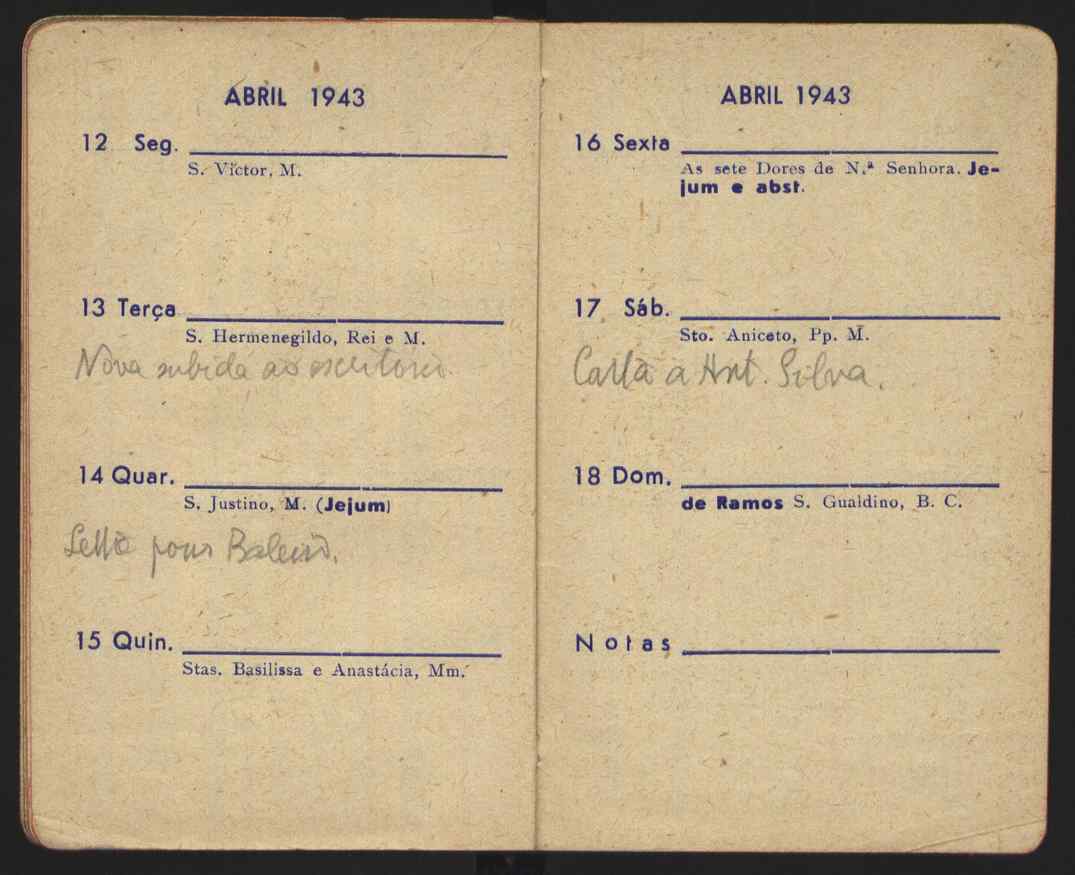 ABRIL 1943
12 Seg.
S. Víctor, M.
13 Terça
S. Hermenegildo, Rei e M.
Nova subida ao escritório.
14 Quar.
S. Justino, M. (Jejum)
15 Quin.
Stas. Basilissa e Anastácia, Mm.
ABRIL 1943
16 Sexta
As sete Dores de N.ª Senhora. Je-
jum e abst.
17 Sáb.
Sto. Aniceto, Pp. M.
Carta a Ant. Silva.
18 Dom.
de Ramos S. Gualdino, B. C.
Notas